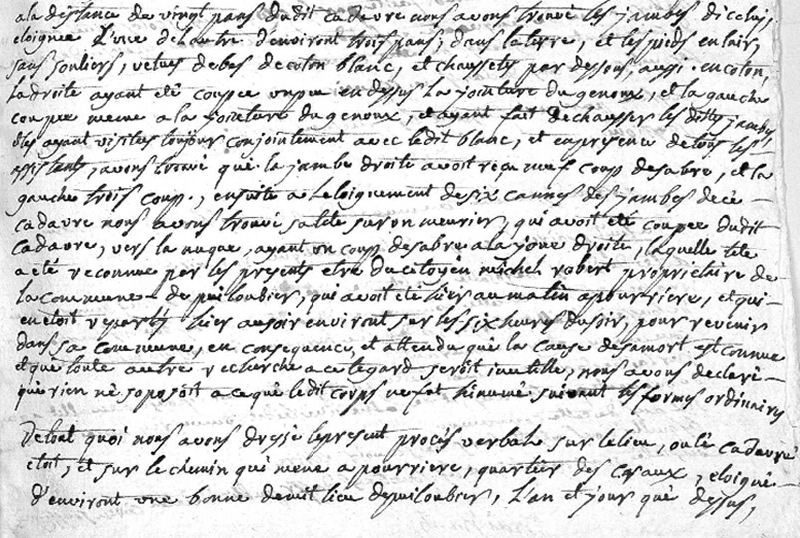 ala distance de vingt pans dudit cadavre nous avons trouvé les jambes dicelui,
eloignée L'une de Lautre d'environt trois pans, dans la terre, et les pieds en lair,
sans souliers, vetues de bas de coton blanc, et chaussets par dessous, aussi en coton,
La droite ayant eté coupée un peu en dessus la jointure du genoux, et la gauche
coupée meme a la jointure du genoux, et ayant fait dechausser les dittes jambes,
et les ayant visitées toujours conjointement avec ledit blanc, et en presence de tous les
assistants, avons trouvé que la jambe droite avoit reçu neuf coup de sabre, et la
gauche trois coup., ensuite a Leloignement de six cannes des jambes de ce
cadavre nous avons trouvé sa tete sur un meurier, qui avoit eté coupée dudit
Cadavre, vers la nuque, ayant un coup de sabre a la joue droite, laquelle tete
a eté reconnue par les presents etre du citoyen michel robert propriétaire de
la commune de puiloubier, qui avoit eté hier au matin a pourriere, et qui
en etoit reparty hier au soir environt sur les six heures du soir, pour revenir
dans sa commune, en consequence, et attendu que la cause de sa mort est connue
et que toute autre recherche a cet egard seroit inutille, nous avons declaré
que rien ne soposoit a ce que ledit corps ne fut hinumé suivant les formes ordinaires
De tout quoi nous avons dressé le present procés verbal sur le lieu, ou le cadavre
etoit, et sur le chemin qui mene a pourriere, quartier des Cazaux, eloigné
d'environt une bonne demit lieu de puiloubier, L'an et jour que dessus,